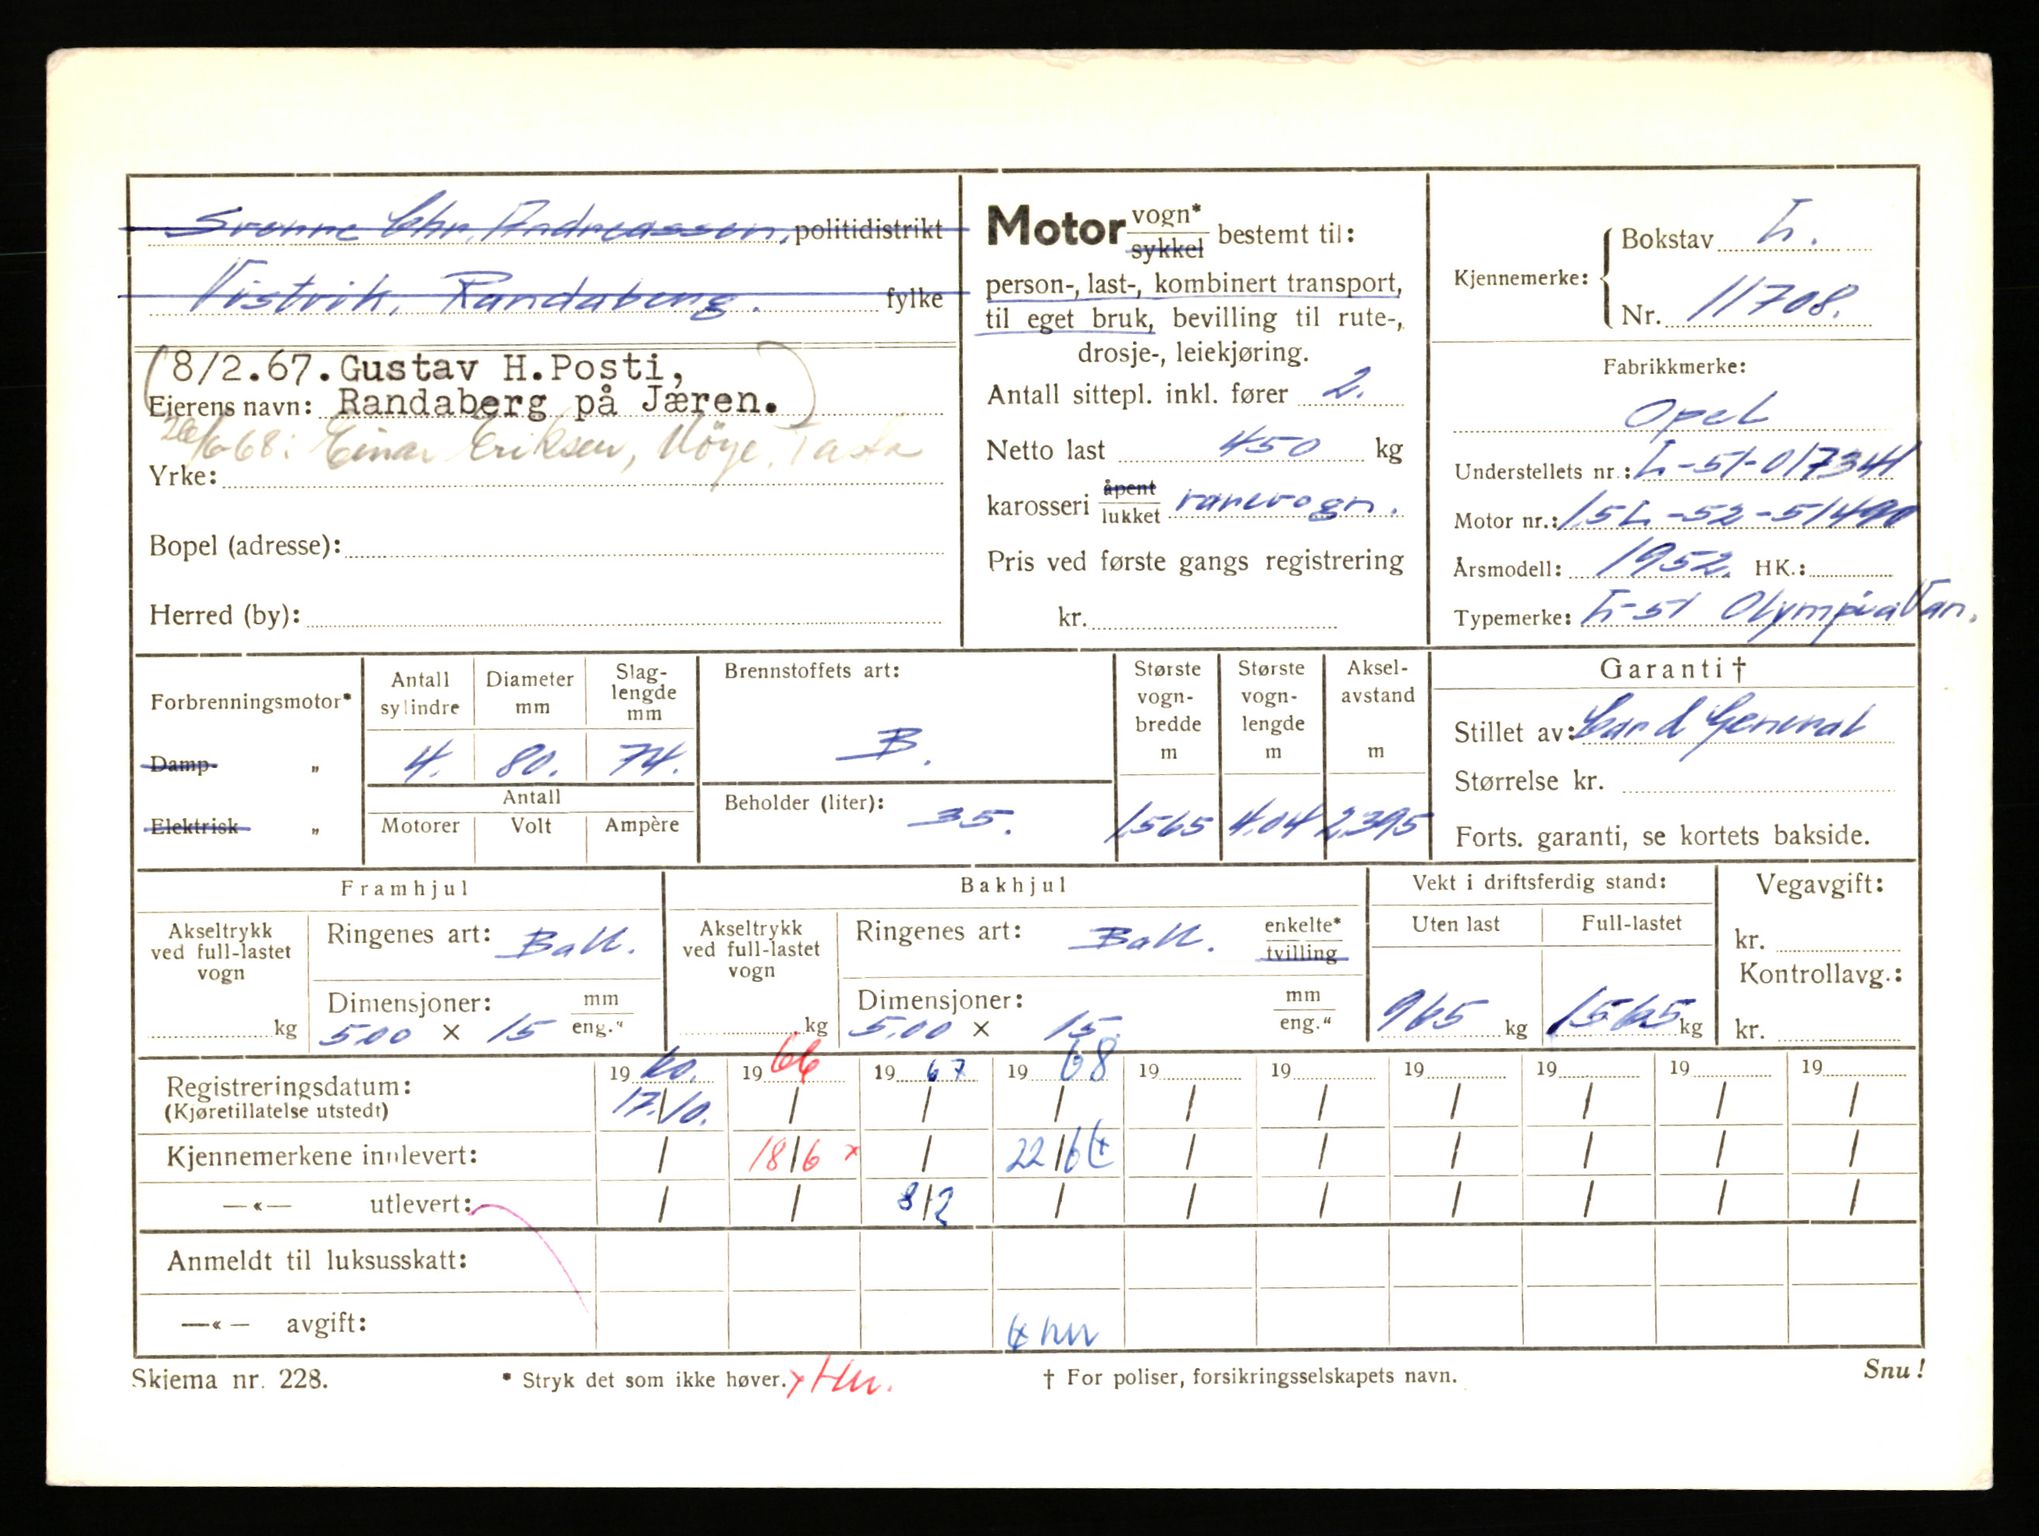 Svenne Chr. Andreassen, politidistrikt
Vistvik, Randaberg. fylke
(8/2.67. Gustav H. Posti,
Eierens navn: Randaberg på Jæren.)
68: Einar Eriksen, Tasta
Yrke:
Bopel (adresse):
Herred (by):
Motor vogn* sykkel bestemt til:
person-, last-, kombinert transport,
til eget bruk, bevilling til rute-,
drosje-, leiekjøring.
Antall sittepl. inkl. fører 2.
Netto last 450 kg
karosseri åpent lukket varevogn.
Pris ved første gangs registrering
kr.
Kjennemerke:
Bokstav L.
Nr. 11708.
Fabrikkmerke:
Opel
Understellets nr.: L-51-017341
Motor nr.: 1,5L-52-51490
Årsmodell: 1952. HK.:
Typemerke: L-51 Olympia Van.
Forbrenningsmotor*
Damp „
Elektrisk „
Antall sylindre
4.
Diameter mm
80.
Slag- lengde mm
74.
Antall
Motorer Volt Ampère
Brennstoffets art:
B.
Beholder (liter): 35.
Største vogn- bredde m
1,565
Største vogn- lengde m
4.04
Aksel- avstand m
2,395
Garanti †
Stillet av: Car & General
Størrelse kr.
Forts. garanti, se kortets bakside.
Framhjul
Akseltrykk ved full-lastet vogn
kg
Ringenes art: Ball.
Dimensjoner: mm eng."
5.00 × 15
Bakhjul
Akseltrykk ved full-lastet vogn
kg
Ringenes art: Ball. enkelte* tvilling
Dimensjoner: mm eng."
5.00 × 15.
Vekt i driftsferdig stand:
Uten last Full-lastet
965 kg 1565 kg
Vegavgift:
kr.
Kontrollavg.:
kr.
Registreringsdatum: 1960. 1966 1967 1968 19 19 19 19 19 19
(Kjøretillatelse utstedt) 17./10. / / / / / / / / /
Kjennemerkene innlevert: / 18/6 x / 22/6 / / / / / /
—«— utlevert: / / 8/2 / / / / / / /
Anmeldt til luksusskatt:
—«— avgift:
Skjema nr. 228.
* Stryk det som ikke høver. x Hn.
† For poliser, forsikringsselskapets navn.
Snu!